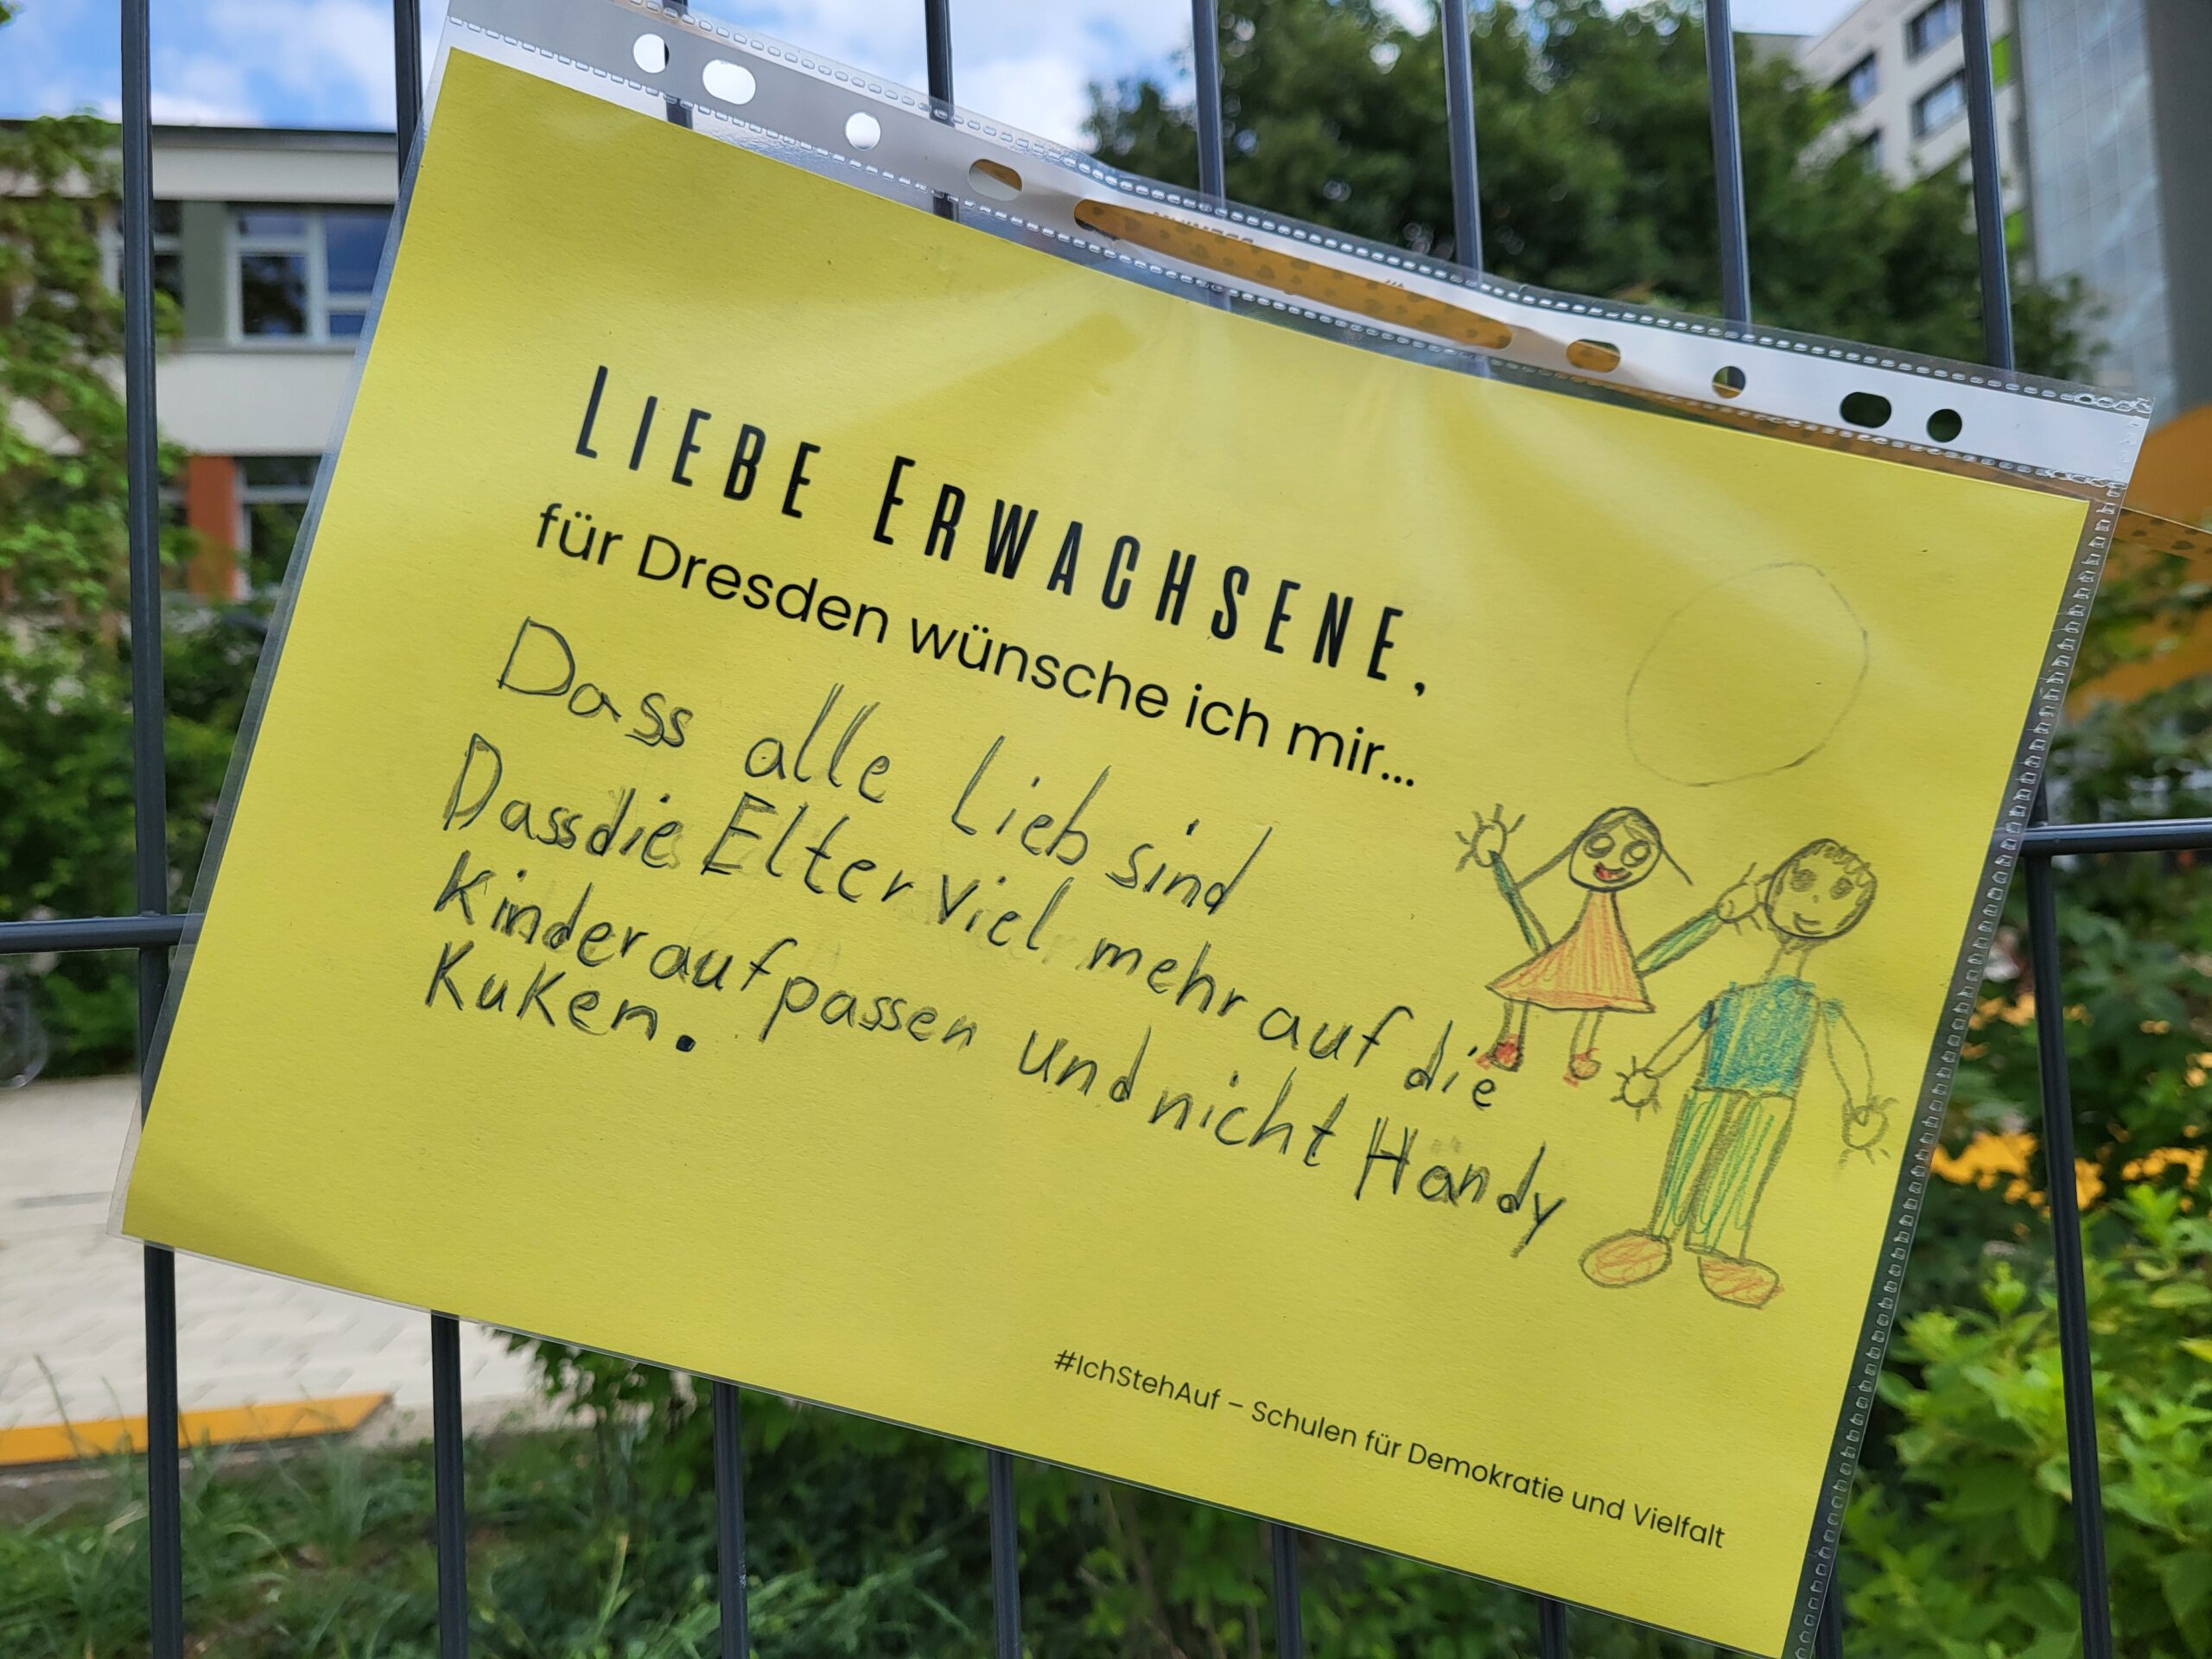 LIEBE ERWACHSENE,
für Dresden wünsche ich mir...
Dass alle Lieb sind
Dass die Elter Viel mehr auf die
Kinder auf passen und nicht Handy
Kuken.
#IchStehAuf – Schulen für Demokratie und Vielfalt